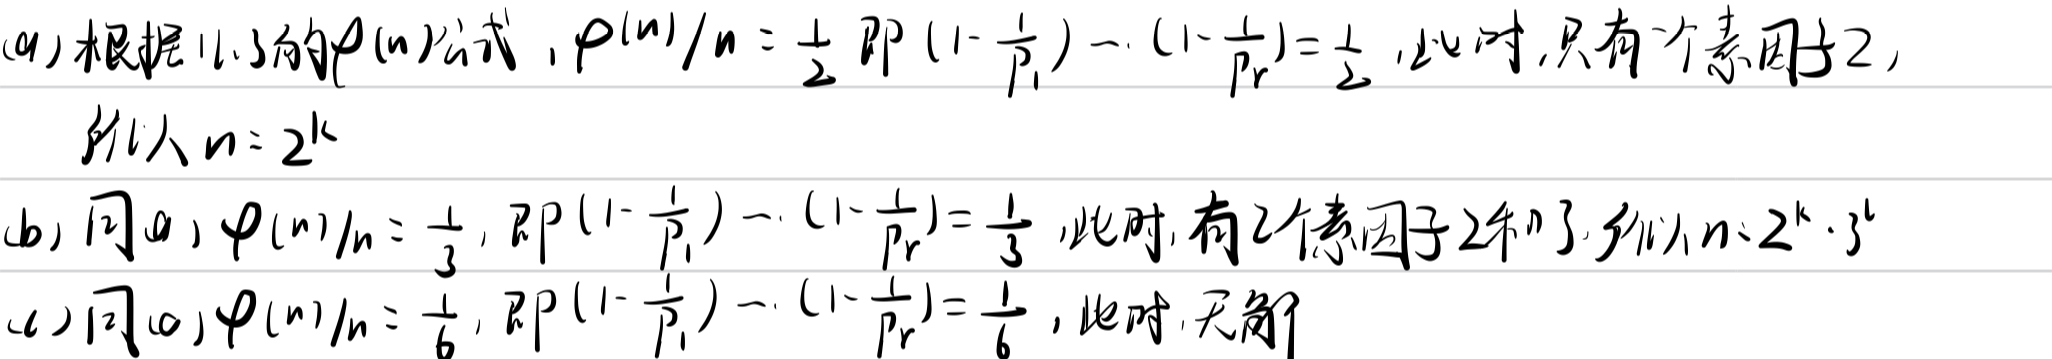 (a) 根据11.3的φ(n)公式，φ(n)/n = 1/2 即 (1-1/p₁)…(1-1/pᵣ)=1/2，此时，只有一个素因子2，
所以 n=2^k
(b) 同(a)，φ(n)/n = 1/3，即(1-1/p₁)…(1-1/pᵣ)=1/3，此时，有2个素因子2和3，所以n=2^k·3^l
(c) 同(a)，φ(n)/n = 1/6，即(1-1/p₁)…(1-1/pᵣ)=1/6，此时，无解